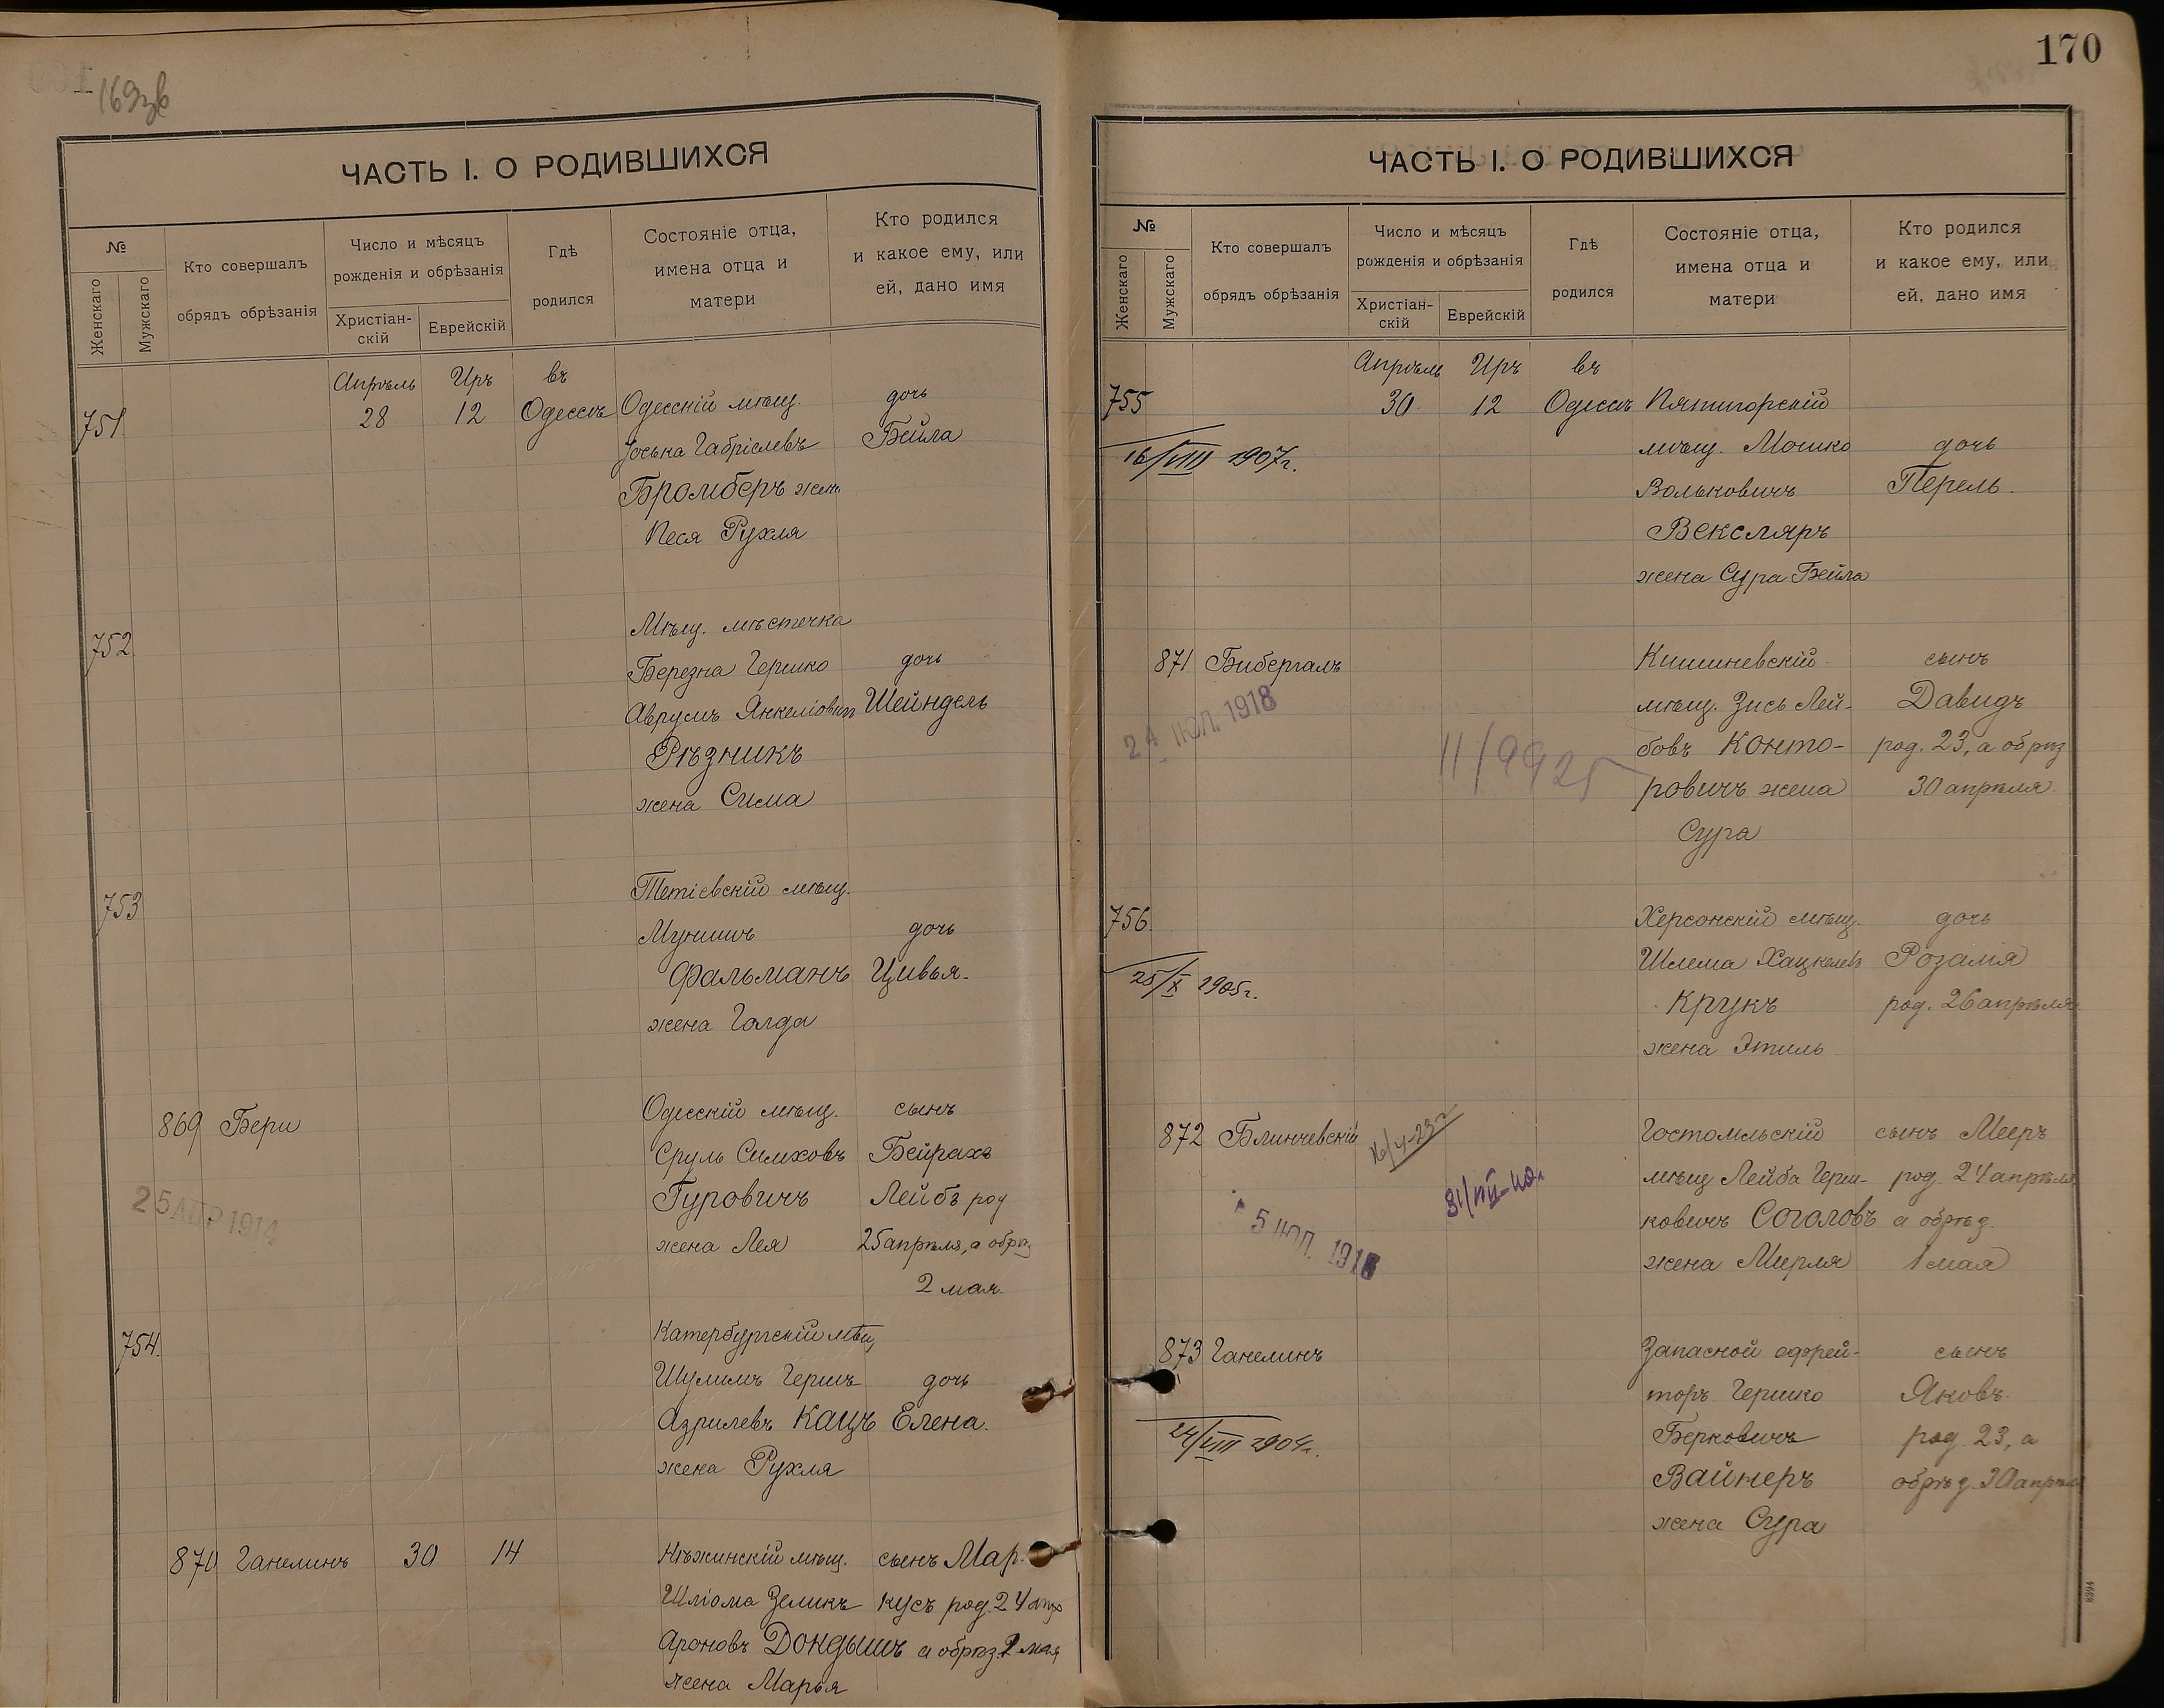 169зв
ЧАСТЬ I. О РОДИВШИХСЯ
№
Женскаго
Мужскаго
Кто совершалъ
обрядъ обрѣзанія
Число и мѣсяцъ
рожденія и обрѣзанія
Христіан-
скій
Еврейскій
Гдѣ
родился
Состояніе отца,
имена отца и
матери
Кто родился
и какое ему, или
ей, дано имя
Апрѣль Иръ въ
751. 28 12 Одессѣ Одесскій мѣщ. дочь
Іоська Габріелевъ Бейла
Бромберъ жен.
Песя Рухля
Мѣщ. мѣстечка
752 Березна Гершко дочь
Аврумъ Янкеліович Шейндель
Рѣзникъ
жена Сима
Тетіевскій мѣщ.
753 Мунишъ дочь
Фальманъ Цивья.
жена Голда
869 Бери Одесскій мѣщ. сынъ
Сруль Симховъ Бейрахъ
Гуровичъ Лейбъ род
25 АПР 1914
жена Лея 25 апрѣля, а обрѣз
2 мая.
754. Катербургскій мѣщ,
Шулимъ Гершъ дочь
Азрилевъ Кацъ Елена.
жена Рухля
870 Ганелинъ 30 14 Нѣжинскій мѣщ. сынъ Мар-
Шліома Зеликъ кусъ род. 24 апр
Ароновъ Дондышъ а обрѣз. 2 мая
жена Марья
170
ЧАСТЬ I. О РОДИВШИХСЯ
№
Женскаго
Мужскаго
Кто совершалъ
обрядъ обрѣзанія
Число и мѣсяцъ
рожденія и обрѣзанія
Христіан-
скій
Еврейскій
Гдѣ
родился
Состояніе отца,
имена отца и
матери
Кто родился
и какое ему, или
ей, дано имя
Апрѣль Иръ въ
755 30 12 Одессѣ Пятигорскій
16/VIII 1907г. мѣщ. Мошко дочь
Вольковичъ Перель.
Вексляръ
жена Сура Бейла
871 Бибергалъ Кишиневскій сынъ
24 ІЮЛ. 1918 мѣщ. Зись Лей- Давидъ
11/9925 бовъ Конто- род. 23, а обрѣз
ровичъ жена 30 апрѣля
Сура
756. Херсонскій мѣщ. дочь
Шлема Хацкелевъ Розалія
25/X 1905г. Крукъ род. 26 апрѣля
жена Этиль
872 Блинчевскій Гостомльскій сынъ Мееръ
мѣщ Лейба Герш- род. 24 апрѣля
ковичъ Соголовъ а обрѣз.
5 ІЮЛ. 1918
жена Мирля 1 мая
873 Ганелинъ Запасной ефрей- сынъ
торъ Гершко Яковъ.
24/VIII 1904г. Берковичъ род 23, а
Вайнеръ обрѣз. 30 апрѣля
жена Сура
8394